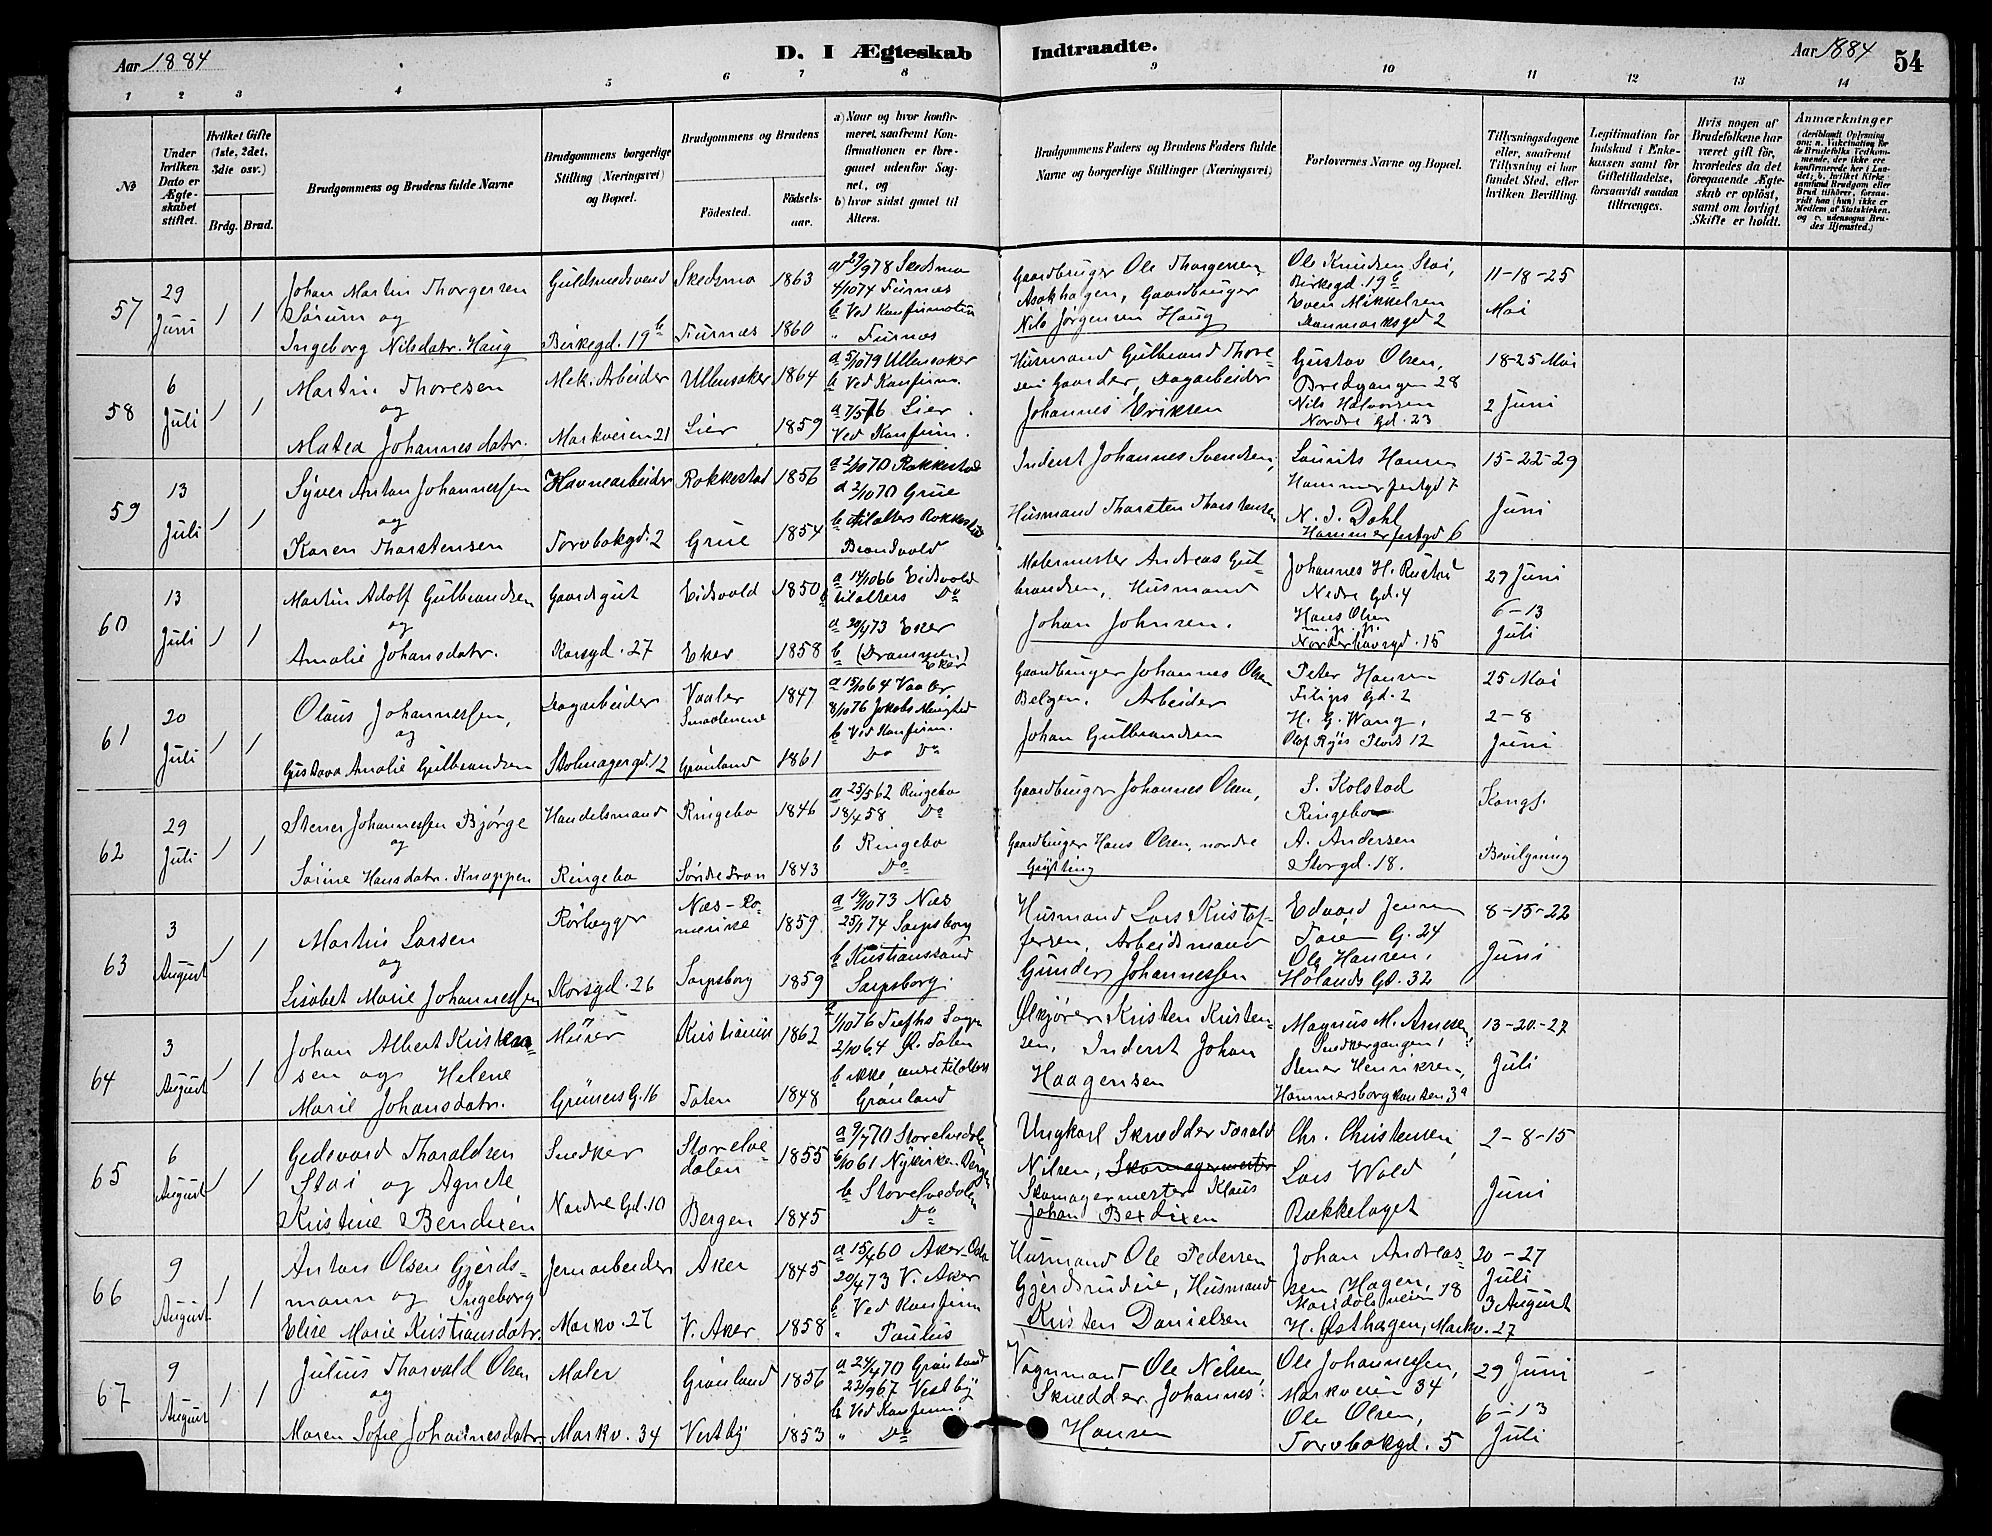 Aar 1884
D. I Ægteskab Indtraadte.
Aar 1884
54
1 2 3 4 5 6 7 8 9 10 11 12 13 14
№
Under hvilken Dato er Ægteskabet stiftet.
Hvilket Gifte (1ste, 2det, 3die osv.)
Brdg. Brud.
Brudgommens og Brudens fulde Navne
Brudgommens borgerlige Stilling (Næringsvei) og Bopæl.
Brudgommens og Brudens
Födested.
Födsels-aar.
a) Naar og hvor konfirmeret, saafremt Konfirmationen er foregaaet udenfor Sognet, og
b) hvor sidst gaaet til Alters.
Brudgommens Faders og Brudens Faders fulde Navne og borgerlige Stillinger (Næringsvei)
Forlovernes Navne og Bopæl.
Tillysningsdagene eller, saafremt Tillysning ei har fundet Sted, efter hvilken Bevilling.
Legitimation for Indskud i Enkekassen samt for Giftetilladelse, forsaavidt saadan tiltrænges.
Hvis nogen af Brudefolkene har været gift för, hvorledes da det foregaaende Ægteskab er oplöst, samt om lovligt Skifte er holdt.
Anmærkninger
57
29 Juni
1 1
Johan Martin Thorgersen
Sørum og
Ingeborg Nilsdatr. Haug
Guldsmedsvend
Birkegd. 19b
Skedsmo 1863
Furnæs 1860
a 29/9 78 Skedsmo
4/10 74 Furnæs
b Ved Konfirmation
" Furnæs
Gaardbruger Ole Thorgersen
Asakhagen, Gaardbruger
Nils Jørgensen Haug
Ole Knudsen Stai,
Birkegd. 19b
Even Mikkelsen
Danmarksgd 2
11-18-25
Mai
58
6 Juli
1 1
Martin Thoresen
og
Matea Johannesdatr.
Mek. Arbeider
Markveien 21
Ullensaker 1864
Lier 1859
a 5/10 79 Ullensaker
b Ved Konfirm.
a 7/5 76 Lier
Ved Konfirm.
Husmand Gulbrand Thore-
sen Gaarder, Dagarbeider
Johannes Eriksen
Gustav Olsen,
Bredgangen 28
Nils Halvorsen
Nordre Gd. 23
18-25 Mai
2 Juni
59
13 Juli
1 1
Syver Anton Johannessen
og
Karen Thorstensen
Havnearbeider
Torvbakgd. 2
Rokkestad 1856
Grue 1854
a 2/10 70 Rokkestad
a 2/10 70 Grue
b til alters Rokkestad
Brandvold
Inderst Johannes Svendsen,
Husmand Thorsten Thorstensen
Laurits Hansen
Hammerfestgd 7
N. J. Dahl
Hammerfestgd 6
15-22-29
Juni
60
13 Juli
1 1
Martin Adolf Gulbrandsen
og
Amalie Johansdatr.
Gaardsgut
Korsgd. 27
Eidsvold 1850
Eker 1858
a 14/10 66 Eidsvold
b til alters Do
a 20/4 73 Eker
b (Drammen) Eker
Malermester Andreas Gul-
brandsen, Husmand
Johan Johnsen.
Johannes H. Rustri
Nedre Gd. 4
Hans Olsen
m. p. p.
Norderhovsgd. 15
29 Juni
6-13
Juli
61
20 Juli
1 1
Olaus Johannessen,
og
Gustava Amalie Gulbrandsen
Dagarbeider
Stolmagergd. 12
Vaaler Smaalenene 1847
Grønland 1861
a 15/10 64 Vaaler
8/10 76 Jakobs Menighed
b Ved Konfirm.
Do Do
Gaardbruger Johannes Olsen
Belgen. Arbeider
Johan Gulbrandsen
Peter Hansen
Filips Gd. 2
H. G. Wang,
Olaf Ryes Plads 12
25 Mai
2-8
Juni
62
29 Juli
1 1
Stener Johannessen Bjørge
og
Sørine Hansdatr. Knappen
Handelsmand
Ringebo
Ringebo 1846
Søndre Fron 1843
a 25/5 62 Ringebo
18/4 58 Do
b Ringebo
Do
Gaardbruger Johannes Olsen,
Gaardbruger Hans Olsen, nordre
S. Kolstad
Ringebo
A. Andersen
Storgd. 18.
Kongl.
Bevilgning
63
3 August
1 1
Martin Larsen
og
Lisabet Marie Johannessen
Rørlægger
Korsgd. 26
Næs-Ro-
merike 1859
Sarpsborg 1859
a 19/10 73 Næs
25/1 74 Sarpsborg
b Kristianssand
Sarpsborg
Husmand Lars Kristof-
fersen, Arbeidsmand
Gunder Johannessen
Edvard Jensen
Tøien G. 24
Ole Hansen,
Hølands Gd. 32
8-15-22
Juni
64
3 August
1 1
Johan Albert Kristen-
sen og Helene
Marie Johansdatr.
Murer
Grüners G. 16
Kristiania 1862
Toten 1848
a 1/10 76 Trefhs Sogn
2/10 64 Toten
b ikke andre til alters
Grønland
Ølkjører Kristen Kristen-
sen, Inderst Johan
Haagensen
Magnus M. Arnesen
Snedkergangen,
Stener Henriksen,
Hammersborgkanten 3a
13-20-27
Juli
65
6 August
1 1
Gedevard Tharaldsen
Stai og Agnete
Kristine Bendixen
Snedker
Nordre Gd. 10
Storelve-
dalen 1855
Bergen 1845
a 9/7 70 Storelvedalen
6/10 61 Nykirken Bergen
b Storelvedalen
Do
Ungkarl Skrædder Torald
Nilsen, Skomagermester
Skomagermester Klaus
Johan Bendixen
Chr. Christensen
Lars Wold
Bækkelaget
2-8-15
Juni
66
9 August
1 1
Anton Olsen Gjerds-
mann og Ingeborg
Elise Marie Kristiansdatr.
Jernarbeider
Markv. 27
Aker 1845
V. Aker 1858
a 15/4 60 Aker-Oslo
20/4 73 V. Aker
b Ved Konfirm
" Paulus
Husmand Ole Pedersen
Gjerdsrudeie, Husmand
Kristen Danielsen
Johan Andreas-
sen Hagen,
Maridalsveien 18
H. Østhagen, Markv. 27
20-27
Juli
3 August
67
9 August
1 1
Julius Thorvald Olsen
og
Maren Sofie Johannesdatr.
Maler
Markv. 34
Grønland 1856
Vestby 1853
a 24/4 70 Grønland
22/9 67 Vestby
b Ved Konfirm.
" Do
Vognmand Ole Nilsen,
Skrædder Johannes
Hansen
Ole Johannessen,
Markveien 34
Ole Olsen,
Torvbakgd. 5
29 Juni
6-13
Juli